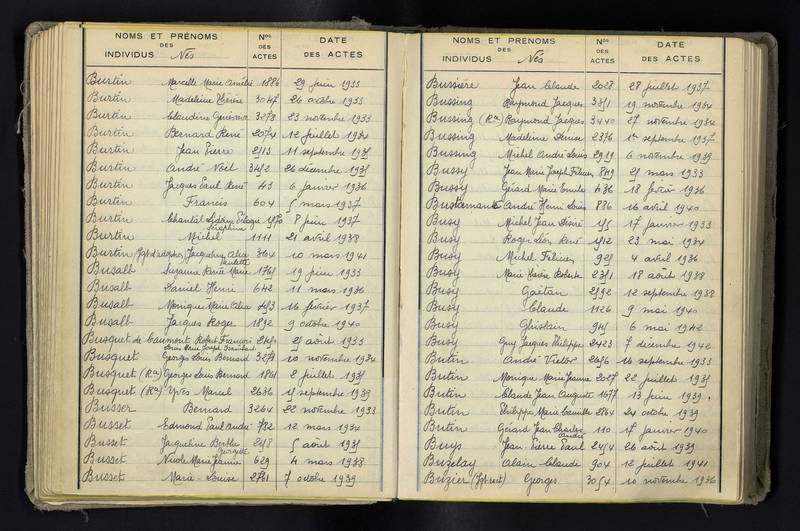 NOMS ET PRÉNOMS
DES
INDIVIDUS Nés
Nos
DES
ACTES
DATE
DES ACTES
Burtin Marcelle Marie Amélie 1886 29 juin 1933
Burtin Madeleine Thérèse 3047 26 octobre 1933
Burtin Claudine 3278 23 novembre 1933
Burtin Bernard René 2074 12 juillet 1934
Burtin Jean Pierre 11 septembre 1935
Burtin André Noël 26 décembre 1935
Burtin Jacques Paul René 43 6 janvier 1936
Burtin Francis 604 5 mars 1937
Burtin Chantal 8 juin 1937
Séraphine
Burtin Michel 1111 21 avril 1938
Burtin Jacqueline Alice 364 10 mars 1941
Paulette
Busalt Suzanne Renée Marie 19 juin 1933
Busalt Daniel Henri 642 11 mars 1936
Busalt Monique Marie 16 février 1937
Busalt Jacques Roger 1892 9 octobre 1940
Busquet de Caumont Robert François 25 août 1933
Louis Marie Joseph
Busquet Georges Louis Bernard 3271 20 novembre 1934
Busquet (Ron) Georges Louis Bernard 1861 2 juillet 1935
Busquet (Ron) Yves Marcel 2636 15 septembre 1939
Busser Bernard 3264 22 novembre 1933
Busset Edmond Paul André 782 12 mars 1934
Busset Jacqueline Berthe 5 août 1935
Georgette
Busset Nicole Marie Jeanne 629 4 mars 1938
Busset Marie-Louise 2761 7 octobre 1939
NOMS ET PRÉNOMS
DES
INDIVIDUS Nés
Nos
DES
ACTES
DATE
DES ACTES
Bussière Jean Claude 2028 28 juillet 1937
Bussing Raymond Jacques 3351 19 novembre 1934
Bussing (Ron) Raymond Jacques 3440 27 novembre 1934
Bussing Madeleine Denise 2376 1er septembre 1937
Bussing Michel André Louis 2919 6 novembre 1939
Bussy Jean Marie Joseph Félicien 849 25 mars 1933
Bussy Gérard Marie 436 18 février 1936
André Henri Louis 886 16 avril 1940
Busy Michel Jean Désiré 17 janvier 1933
Busy Roger Léon René 23 mai 1934
Busy Michel Félicien 929 4 avril 1936
Busy Marie Thérèse Roberte 18 août 1938
Busy Gaëtan 12 septembre 1938
Busy Claude 1126 9 mai 1940
Busy Ghislain 6 mai 1942
Busy Guy Jacques Philippe 2423 7 décembre 1942
Butin André Victor 16 septembre 1933
Butin Monique Marie Jeanne 22 juillet 1935
Butin Claude Jean Auguste 1677 13 juin 1939
Butin Philippe Marie Camille 2864 24 octobre 1939
Butin Gérard Jean Charles 110 17 janvier 1940
André
Buys Jean-Pierre Paul 26 août 1939
Buzelay Alain Claude 904 12 juillet 1941
Buzier Georges 10 novembre 1936